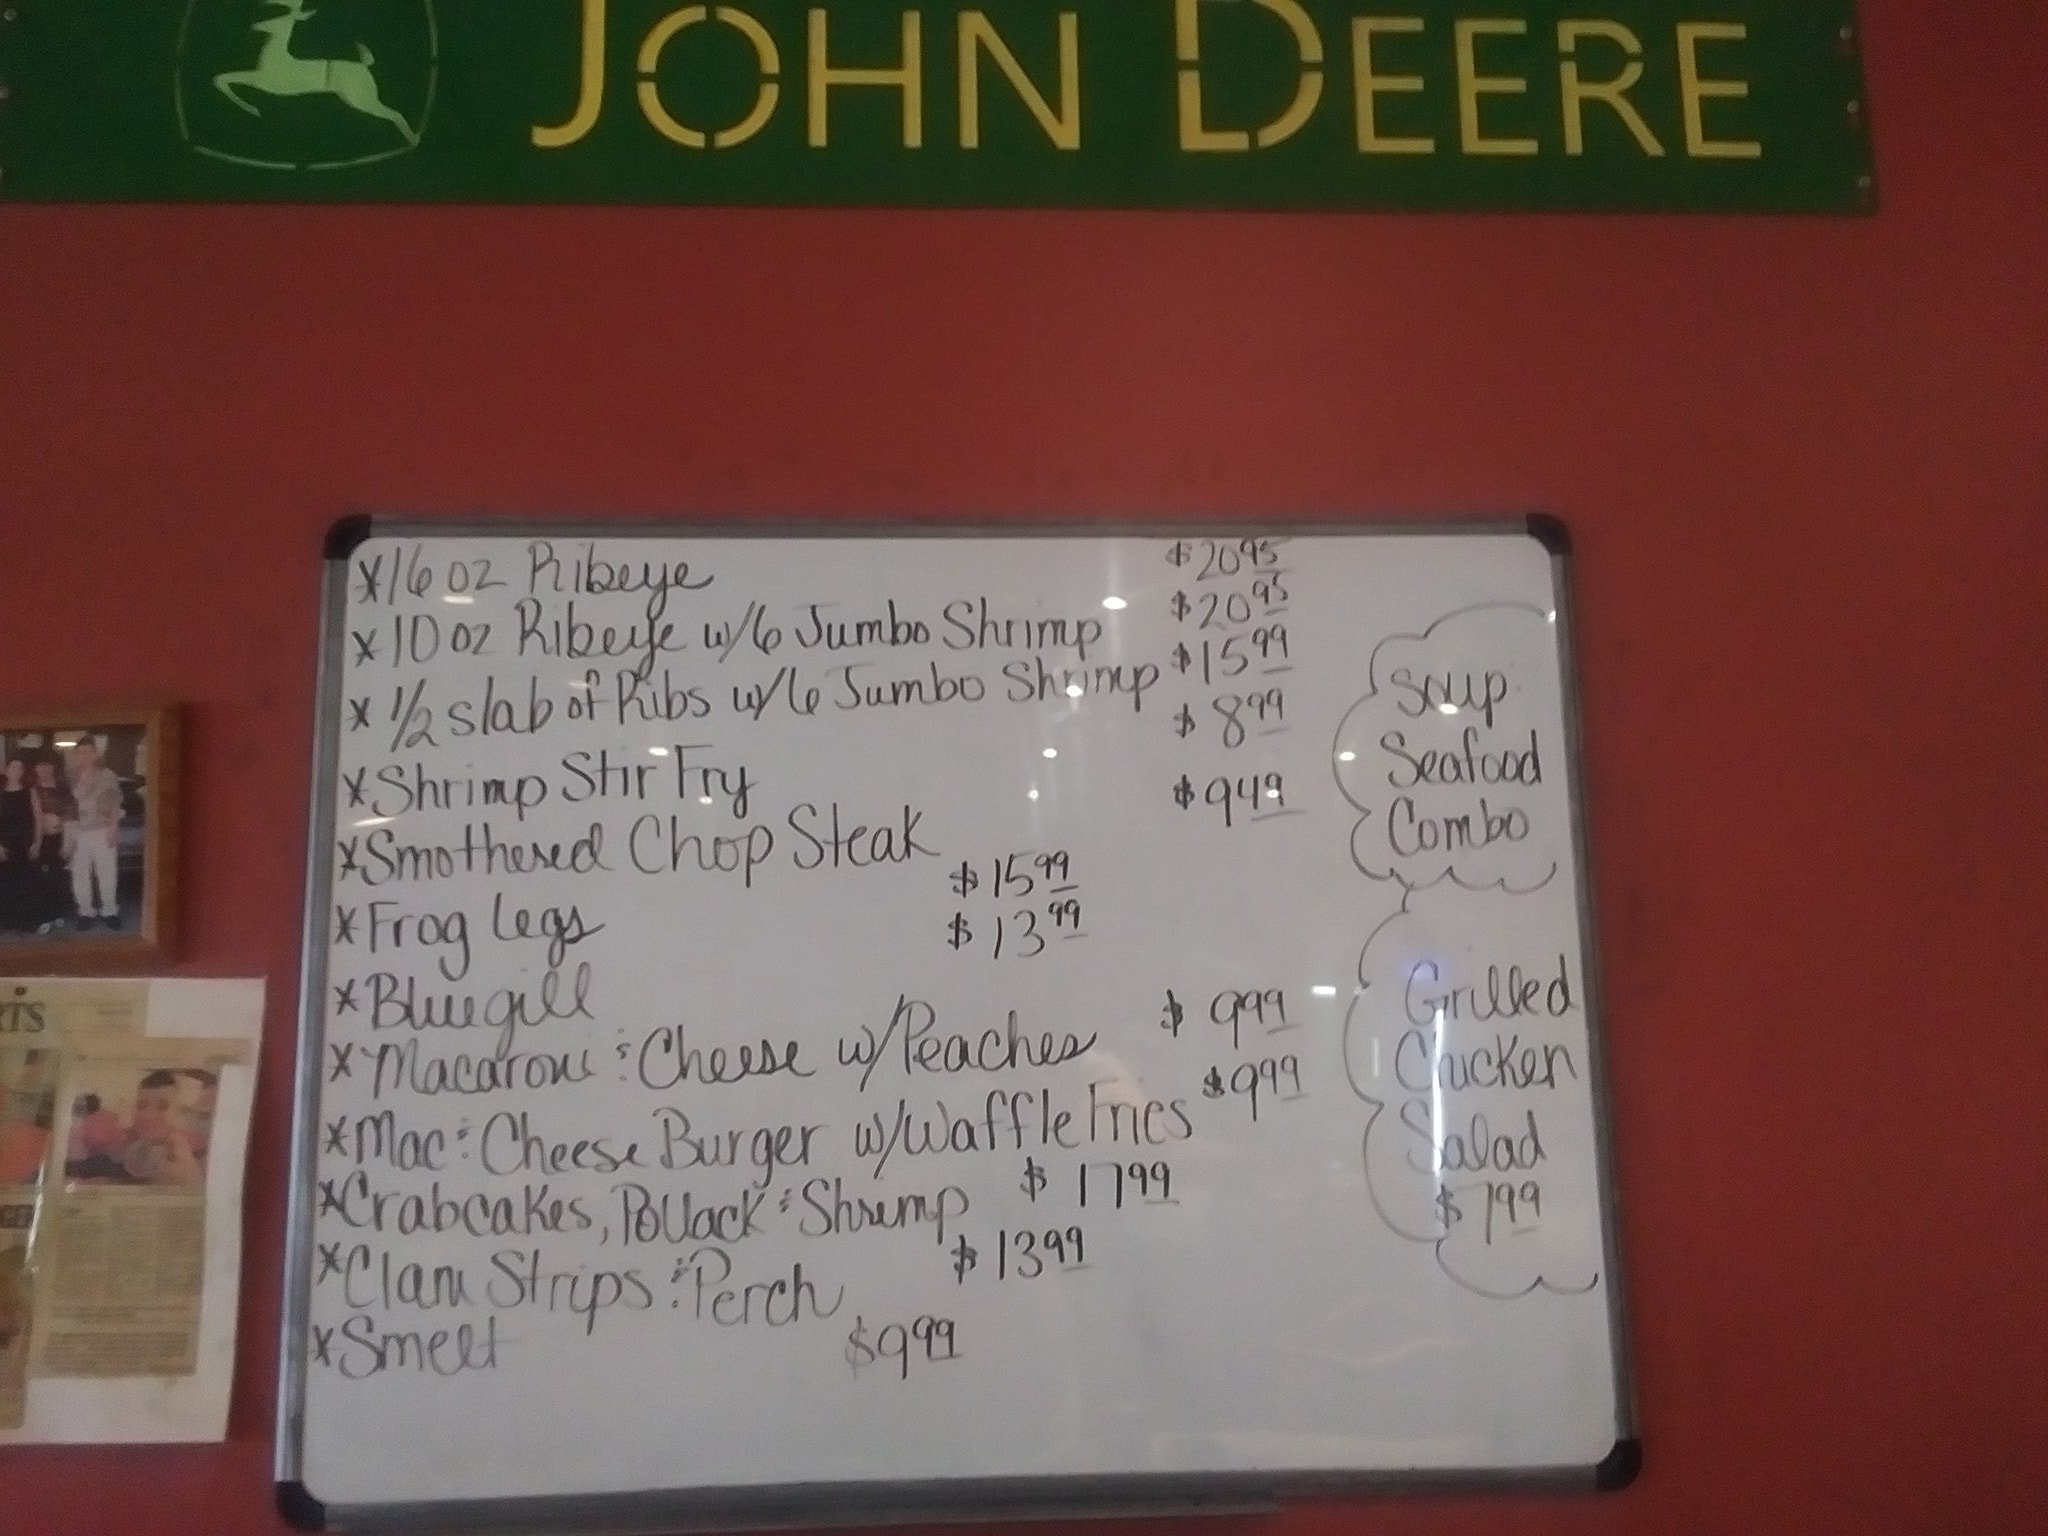 JOHN DEERE
*16 oz Ribeye $20.95
*10 oz Ribeye w/6 Jumbo Shrimp $20.95
*1/2 slab of Ribs w/6 Jumbo Shrimp $15.99
*Shrimp Stir Fry $8.99
*Smothered Chop Steak $9.49
*Frog Legs $15.99
*Bluegill $13.99
*Macaroni & Cheese w/Peaches $9.99
*Mac & Cheese Burger w/Waffle Fries $9.99
*Crabcakes, Pollack & Shrimp $17.99
*Clam Strips & Perch $13.99
*Smelt $9.99
Soup
Seafood
Combo
Grilled
Chicken
Salad
$7.99